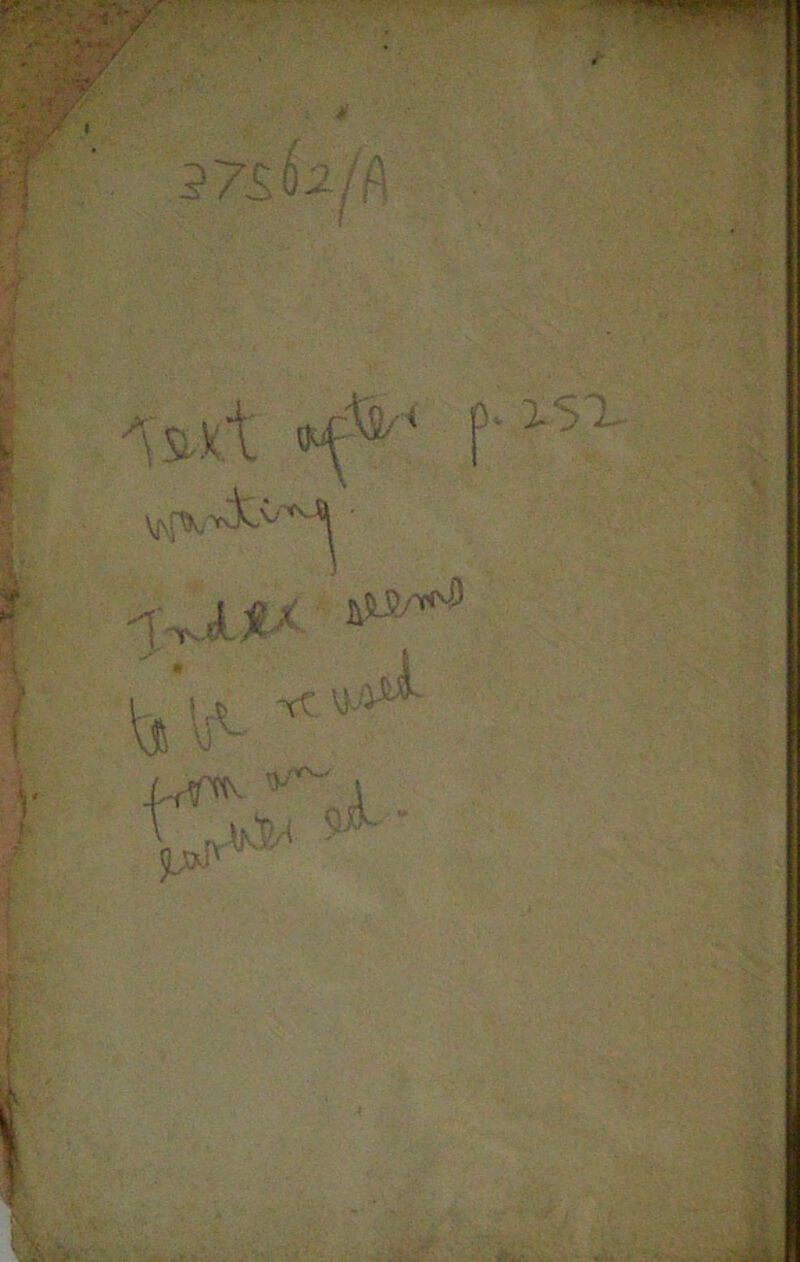 37562/A
Text after p. 252
wanting.
Index seems
to be reused
from an
earlier ed.